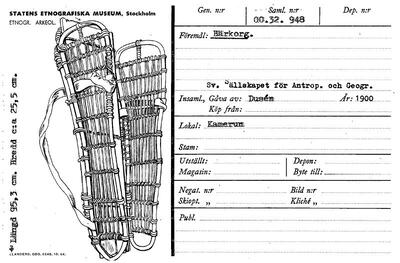 STATENS ETNOGRAFISKA MUSEUM, Stockholm
ETNOGR. ARKEOL.
Längd 95,3 cm. Bredd c:a 25,5 cm.
Gen. n:r
Saml. n:r
00.32. 948
Dep. n:r
Föremål: Bärkorg.
Sv. Sällskapet för Antrop. och Geogr.
Insaml., Gåva av: Dusén
År: 1900
Köp från:
Lokal: Kamerun
Stam:
Utställt:
Depon:
Magasin:
Byte till:
Negat. n:r
Bild n:r
Skiopt. „
Kliché „
Publ.